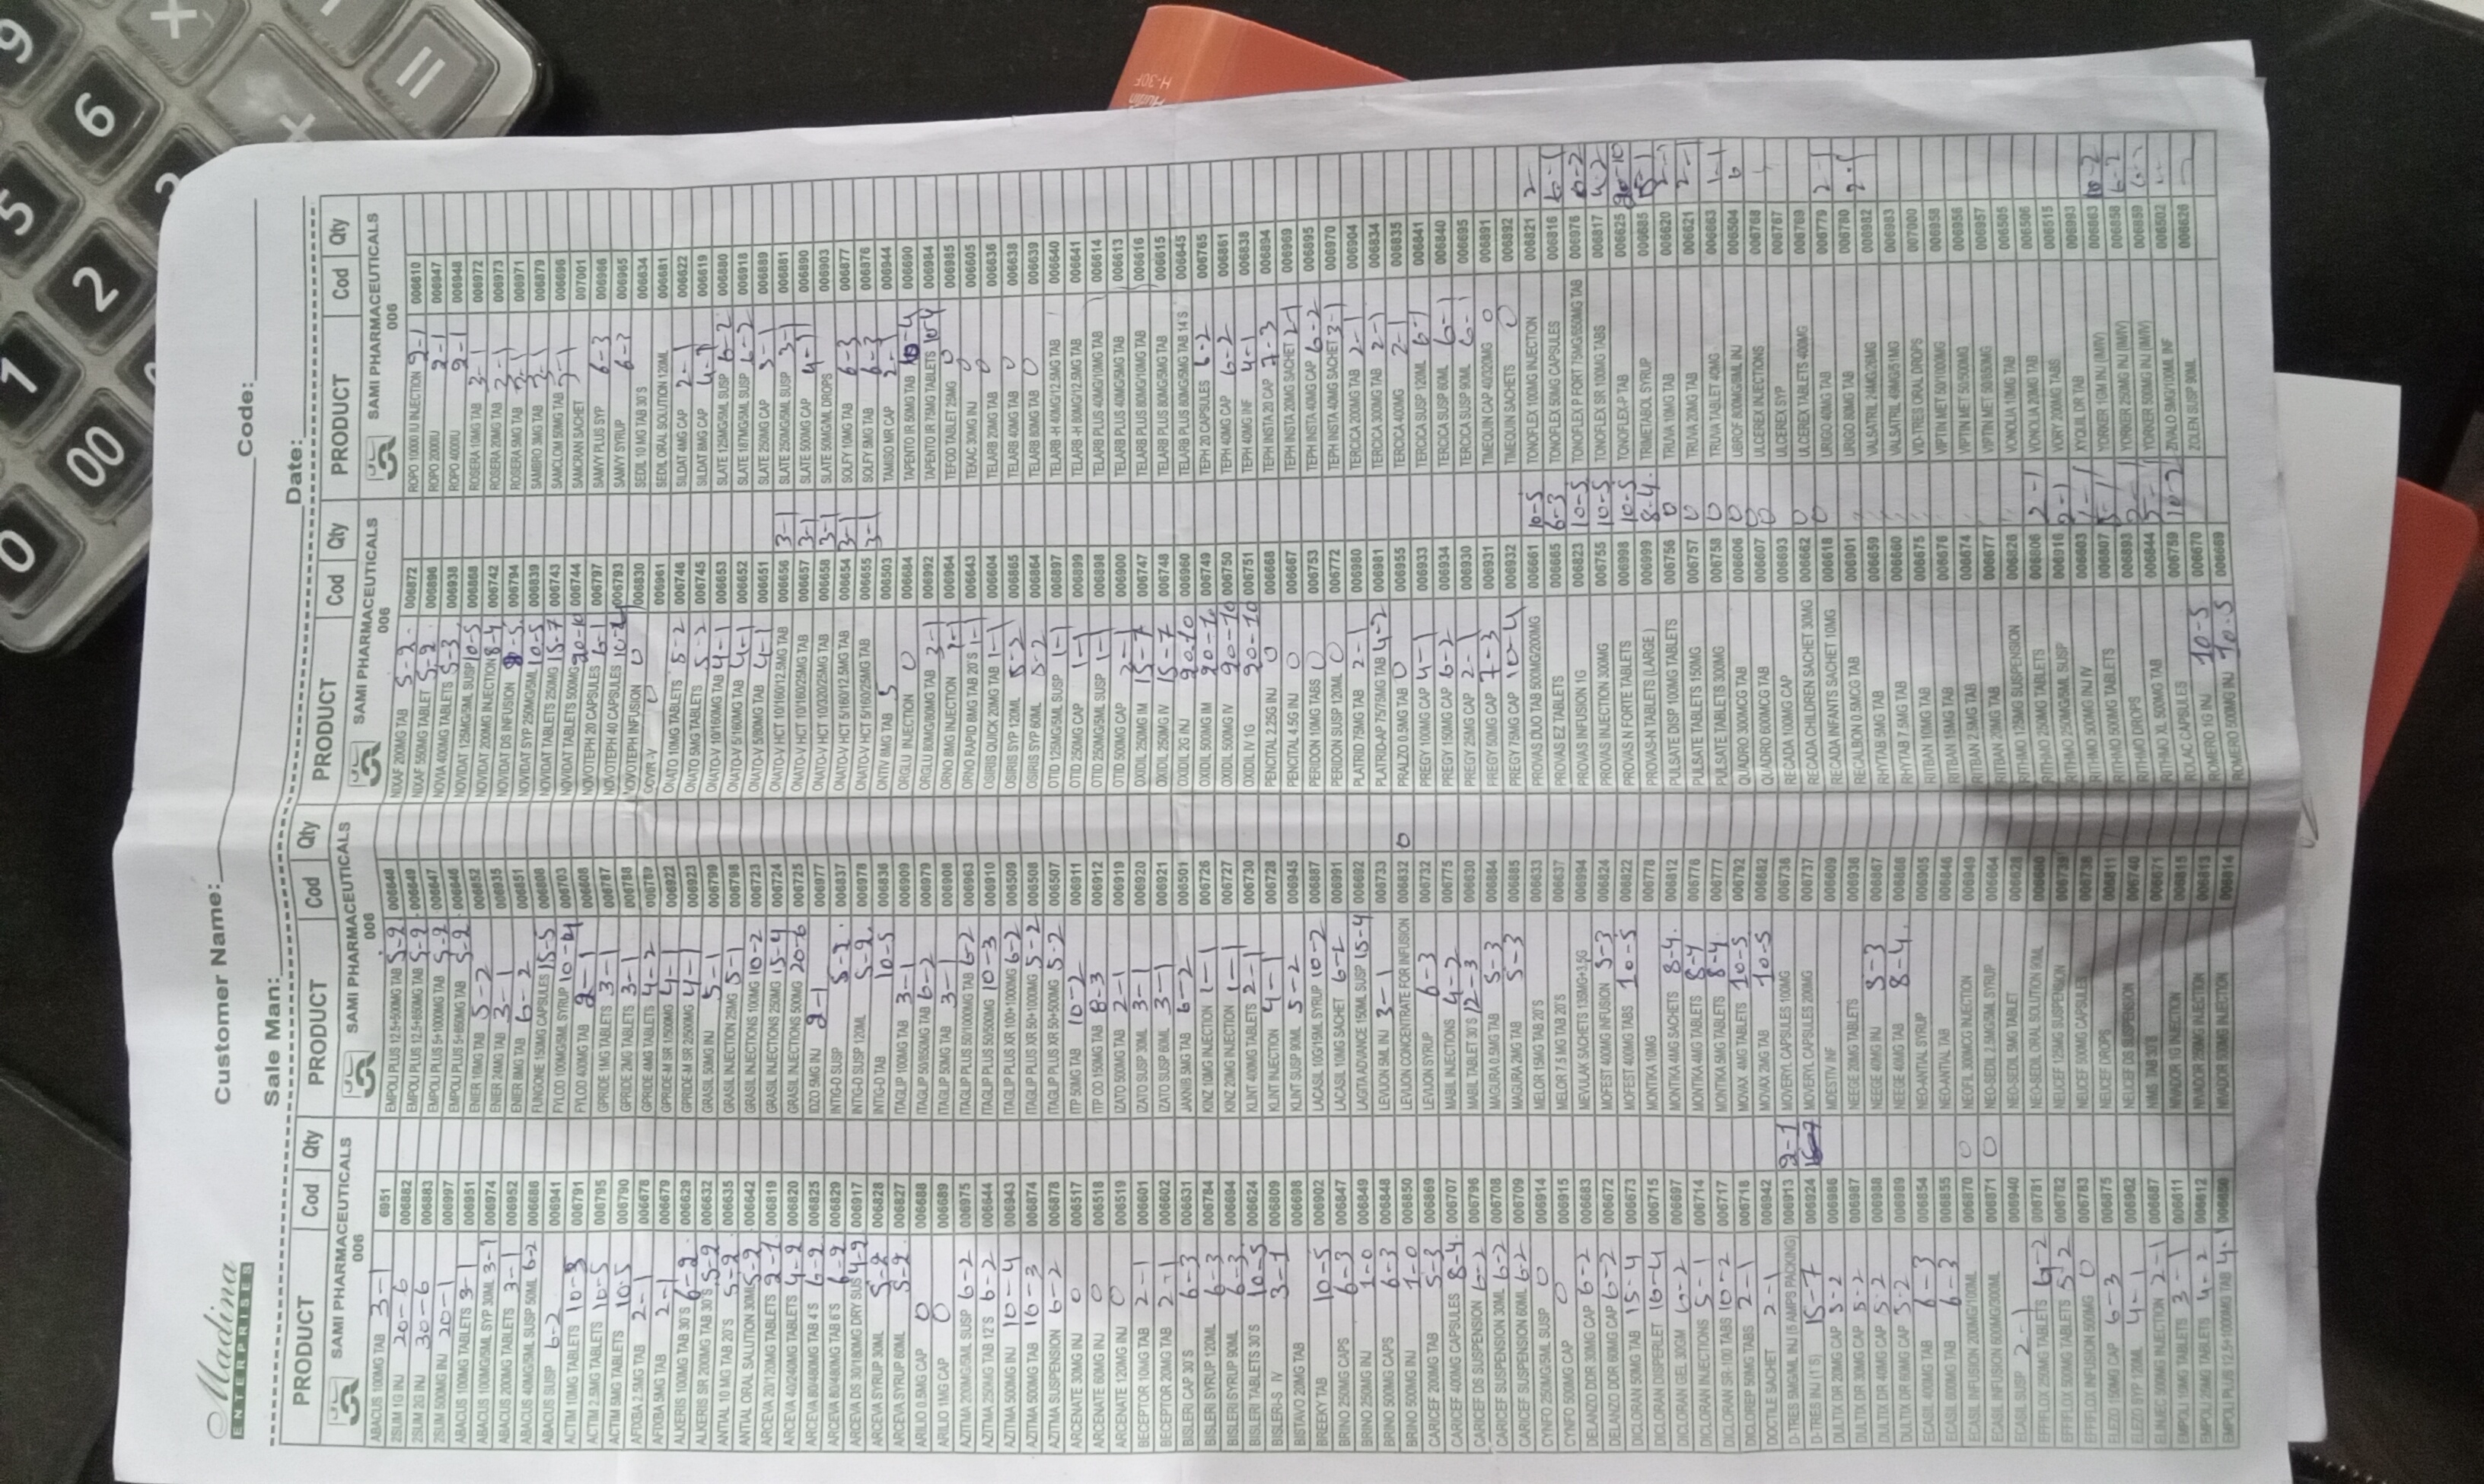 Madina
ENTERPRISES
Customer Name:
Code:
Sale Man:
Date:
PRODUCT Cod Qty
SAMI PHARMACEUTICALS
006
ABACUS 100MG TAB 3-1 6951
2SUM 1G INJ 20-6 006882
2SUM 2G INJ 30-6 006883
2SUM 500MG INJ 20-1 006997
ABACUS 100MG TABLETS 3-1 006951
ABACUS 100MG/5ML SYP 30ML 3-1 006974
ABACUS 200MG TABLETS 3-1 006952
ABACUS 40MG/5ML SUSP 50ML 6-2 006686
ABACUS SUSP 6-2 006941
ACTIM 10MG TABLETS 10-3 006791
ACTIM 2.5MG TABLETS 10-5 006795
ACTIM 5MG TABLETS 10-5 006790
AFIXBA 2.5MG TAB 2-1 006678
AFIXBA 5MG TAB 2-1 006679
ALKERIS 100MG TAB 30'S 6-2 006629
ALKERIS SR 200MG TAB 30'S 5-2 006632
ANTIAL 10 MG TAB 20'S 5-2 006635
ANTIAL ORAL SALUTION 30ML 5-2 006642
ARCEVA 20/120MG TABLETS 2-1 006819
ARCEVA 40/240MG TABLETS 4-2 006820
ARCEVA 80/480MG TAB 4'S 6-2 006825
ARCEVA 80/480MG TAB 6'S 6-2 006829
ARCEVA DS 30/180MG DRY SUS 4-2 006917
ARCEVA SYRUP 30ML 5-2 006828
ARCEVA SYRUP 60ML 5-2 006827
ARILIO 0.5MG CAP 0 006688
ARILIO 1MG CAP 0 006689
AZITMA 200MG/5ML SUSP 6-2 006975
AZITMA 250MG TAB 12'S 6-2 006644
AZITMA 500MG INJ 10-4 006943
AZITMA 500MG TAB 10-3 006874
AZITMA SUSPENSION 6-2 006878
ARCENATE 30MG INJ 0 006517
ARCENATE 60MG INJ 0 006518
ARCENATE 120MG INJ 0 006519
BECEPTOR 10MG TAB 2-1 006601
BECEPTOR 20MG TAB 2-1 006602
BISLERI CAP 30'S 6-3 006631
BISLERI SYRUP 120ML 6-3 006784
BISLERI SYRUP 90ML 6-3 006694
BISLERI TABLETS 30'S 10-5 006624
BISLERI-S IV 3-1 006809
BISTAVO 20MG TAB 006698
BREEKY TAB 10-5 006902
BRINO 250MG CAPS 6-3 006847
BRINO 250MG INJ 1-0 006849
BRINO 500MG CAPS 6-3 006848
BRINO 500MG INJ 1-0 006850
CARICEF 200MG TAB 5-3 006869
CARICEF 400MG CAPSULES 8-4 006707
CARICEF DS SUSPENSION 6-2 006796
CARICEF SUSPENSION 30ML 6-2 006708
CARICEF SUSPENSION 60ML 6-2 006709
CYNFO 250MG/5ML SUSP 0 006914
CYNFO 500MG CAP 0 006915
DELANZO DDR 30MG CAP 6-2 006683
DELANZO DDR 60MG CAP 6-2 006672
DICLORAN 50MG TAB 15-4 006673
DICLORAN DISPERLET 10-4 006715
DICLORAN GEL 30GM 6-2 006697
DICLORAN INJECTIONS 5-1 006714
DICLORAN SR-100 TABS 10-2 006717
DICLOREP 50MG TABS 2-1 006718
DOCTILE SACHET 2-1 006942
D-TRES 5MG/ML INJ (5 AMPS PACKING) 006913 2-1
D-TRES INJ (1 S) 15-7 006924
DULTIX DR 20MG CAP 5-2 006986
DULTIX DR 30MG CAP 5-2 006987
DULTIX DR 40MG CAP 5-2 006988
DULTIX DR 60MG CAP 5-2 006989
ECASIL 400MG TAB 6-3 006854
ECASIL 600MG TAB 6-3 006855
ECASIL INFUSION 200MG/100ML 006870 0
ECASIL INFUSION 600MG/300ML 006871 0
ECASIL SUSP 2-1 006940
EFFIFLOX 250MG TABLETS 4-2 006781
EFFIFLOX 500MG TABLETS 5-2 006782
EFFIFLOX INFUSION 500MG 0 006783
ELEZO 100MG CAP 6-3 006875
ELEZO SYP 120ML 4-1 006962
ELINJEC 500MG INJECTION 2-1 006687
EMPOLI 10MG TABLETS 3-1 006611
EMPOLI 25MG TABLETS 4-2 006612
EMPOLI PLUS 12.5+1000MG TAB 4-1
PRODUCT Cod Qty
SAMI PHARMACEUTICALS
006
EMPOLI PLUS 12.5+500MG TAB 5-2 006648
EMPOLI PLUS 12.5+850MG TAB 5-2 006649
EMPOLI PLUS 5+1000MG TAB 5-2 006647
EMPOLI PLUS 5+850MG TAB 5-2 006646
ENIER 16MG TAB 5-2 006852
ENIER 24MG TAB 3-1 006935
ENIER 8MG TAB 6-2 006851
FUNGONE 150MG CAPSULES 15-5 006808
FYLOD 100MG/5ML SYRUP 10-4 006703
FYLOD 400MG TAB 2-1 006608
GPRIDE 1MG TABLETS 3-1 006787
GPRIDE 2MG TABLETS 3-1 006788
GPRIDE 4MG TABLETS 4-2 006789
GPRIDE-M SR 1/500MG 4-1 006922
GPRIDE-M SR 2/500MG 4-1 006923
GRASIL 50MG INJ 5-1 006799
GRASIL INJECTION 25MG 5-1 006798
GRASIL INJECTIONS 100MG 10-2 006723
GRASIL INJECTIONS 250MG 15-4 006724
GRASIL INJECTIONS 500MG 20-6 006725
IDZO 5MG INJ 2-1 006977
INTIG-D SUSP 5-2 006837
INTIG-D SUSP 120ML 5-2 006978
INTIG-D TAB 10-5 006836
ITAGLIP 100MG TAB 3-1 006909
ITAGLIP 50/850MG TAB 6-2 006979
ITAGLIP 50MG TAB 3-1 006908
ITAGLIP PLUS 50/1000MG TAB 6-2 006963
ITAGLIP PLUS 50/500MG 10-3 006910
ITAGLIP PLUS XR 100+1000MG 6-2 006509
ITAGLIP PLUS XR 50+1000MG 5-2 006508
ITAGLIP PLUS XR 50+500MG 5-2 006507
ITP 50MG TAB 10-2 006911
ITP OD 150MG TAB 8-3 006912
IZATO 500MG TAB 2-1 006919
IZATO SUSP 30ML 3-1 006920
IZATO SUSP 60ML 3-1 006921
JAKNIB 5MG TAB 6-2 006501
KINZ 10MG INJECTION 1-1 006726
KINZ 20MG INJECTION 1-1 006727
KLINT 400MG TABLETS 2-1 006730
KLINT INJECTION 4-1 006728
KLINT SUSP 90ML 5-2 006945
LACASIL 10G/15ML SYRUP 10-2 006887
LACASIL 10GM SACHET 6-2 006991
LAGITA ADVANCE 150ML SUSP 15-4 006692
LEVIJON 5ML INJ 3-1 006733
LEVIJON (CONCENTRATE FOR INFUSION 006832 0
LEVIJON SYRUP 6-3 006732
MABIL INJECTIONS 4-2 006775
MABIL TABLET 30'S 12-3 006630
MAGURA 0.5MG TAB 5-3 006884
MAGURA 2MG TAB 5-3 006885
MELOR 15MG TAB 20'S 006633
MELOR 7.5 MG TAB 20'S 006637
MEVULAK SACHETS 135MG+3.5G 006994
MOFEST 400MG INFUSION 5-3 006824
MOFEST 400MG TABS 10-5 006822
MONTIKA 10MG 006778
MONTIKA 4MG SACHETS 8-4 006812
MONTIKA 4MG TABLETS 8-4 006776
MONTIKA 5MG TABLETS 8-4 006777
MOVAX 4MG TABLETS 10-5 006792
MOVAX 2MG TAB 10-5 006682
MOVERYL CAPSULES 100MG 006736
MOVERYL CAPSULES 200MG 006737
MOESTIV INF 006609
NEEGE 20MG TABLETS 006936
NEEGE 40MG INJ 5-3 006867
NEEGE 40MG TAB 8-4 006866
NEO-ANTIAL SYRUP 006905
NEO-ANTIAL TAB 006846
NEOFIL 300MCG INJECTION 006949
NEO-SEDIL 2.5MG/5ML SYRUP 006664
NEO-SEDIL 5MG TABLET
NEO-SEDIL ORAL SOLUTION 90ML
NEUCEF 125MG SUSPENSION
NEUCEF 500MG CAPSULES 006738
NEUCEF DROPS 006811
NEUCEF DS SUSPENSION 006740
NIMS TAB 30'S 006671
NIVADOR 1G INJECTION 006815
NIVADOR 250MG INJECTION 006813
NIVADOR 500MG INJECTION 006814
PRODUCT Cod Qty
SAMI PHARMACEUTICALS
006
NIXAF 200MG TAB 5-2 006872
NIXAF 550MG TABLET 5-2 006896
NOVIA 400MG TABLETS 5-3 006938
NOVIDAT 125MG/5ML SUSP 10-5 006868
NOVIDAT 200MG INJECTION 8-4 006742
NOVIDAT DS INFUSION 8-5 006794
NOVIDAT SYP 250MG/5ML 10-5 006839
NOVIDAT TABLETS 250MG 15-7 006743
NOVIDAT TABLETS 500MG 20-10 006744
NOVOTEPH 20 CAPSULES 6-1 006797
NOVOTEPH 40 CAPSULES 10-4 006793
NOVOTEPH INFUSION 0 006830
OCVIR-V 0 006961
ONATO 10MG TABLETS 5-2 006746
ONATO 5MG TABLETS 5-2 006745
ONATO-V 10/160MG TAB 4-1 006653
ONATO-V 5/160MG TAB 4-1 006652
ONATO-V 5/80MG TAB 4-1 006651
ONATO-V HCT 10/160/12.5MG TAB 006656 3-1
ONATO-V HCT 10/160/25MG TAB 006657 3-1
ONATO-V HCT 10/320/25MG TAB 006658 3-1
ONATO-V HCT 5/160/12.5MG TAB 006654 3-1
ONATO-V HCT 5/160/25MG TAB 006655 3-1
ONTIV 8MG TAB 5 006503
ORGLU INJECTION 0 006684
ORGLU 80MG/80MG TAB 3-1 006992
ORNO 8MG INJECTION 1-1 006964
ORNO RAPID 8MG TAB 20'S 1-1 006643
OSIRIS QUICK 20MG TAB 1-1 006604
OSIRIS SYP 120ML 5-2 006865
OSIRIS SYP 60ML 5-2 006864
OTID 125MG/5ML SUSP 1-1 006897
OTID 250MG CAP 1-1 006899
OTID 250MG/5ML SUSP 1-1 006898
OTID 500MG CAP 2-1 006900
OXIDIL 250MG IM 15-7 006747
OXIDIL 250MG IV 15-7 006748
OXIDIL 2G INJ 20-10 006960
OXIDIL 500MG IM 20-10 006749
OXIDIL 500MG IV 20-10 006750
OXIDIL IV 1G 20-10 006751
PENCITAL 2.25G INJ 0 006668
PENCITAL 4.5G INJ 0 006667
PERIDON 10MG TABS 0 006753
PERIDON SUSP 120ML 0 006772
PLATRID 75MG TAB 2-1 006980
PLATRID-AP 75/75MG TAB 4-2 006981
PRALZO 0.5MG TAB 0 006955
PREGY 100MG CAP 4-1 006933
PREGY 150MG CAP 6-2 006934
PREGY 25MG CAP 2-1 006930
PREGY 50MG CAP 7-3 006931
PREGY 75MG CAP 10-4 006932
PROVAS DUO TAB 500MG/200MG 006661 10-5
PROVAS EZ TABLETS 006665 6-3
PROVAS INFUSION 1G 006823 10-5
PROVAS INJECTION 300MG 006755 10-5
PROVAS N FORTE TABLETS 006998 10-5
PROVAS-N TABLETS (LARGE ) 006999 8-4
PULSATE DISP 100MG TABLETS 006756 0
PULSATE TABLETS 150MG 006757 0
PULSATE TABLETS 300MG 006758 0
QUADRO 300MCG TAB 006606 0
QUADRO 600MCG TAB 006607 0
RECADA 100MG CAP 006693
RECADA CHILDREN SACHET 30MG 006662 0
RECADA INFANTS SACHET 10MG 006618 0
RECALBON 0.5MCG TAB 006901
RHYTAB 5MG TAB 006659
RHYTAB 7.5MG TAB 006660
RITBAN 10MG TAB 006675
RITBAN 15MG TAB 006676
RITBAN 2.5MG TAB 006674
RITBAN 20MG TAB 006677
RITHMO 125MG SUSPENSION 006826
RITHMO 250MG TABLETS 006806 2-1
RITHMO 250MG/5ML SUSP 006916 2-1
RITHMO 500MG INJ IV 006603 1-1
RITHMO 500MG TABLETS 006807 5-1
RITHMO DROPS 006893
RITHMO XL 500MG TAB 006844 5-1
ROLAC CAPSULES 006759 10-2
ROMERO 1G INJ 10-5 006670
ROMERO 500MG INJ 10-5 006669
PRODUCT Cod Qty
SAMI PHARMACEUTICALS
006
ROPO 10000 IU INJECTION 2-1 006610
ROPO 2000IU 2-1 006947
ROPO 4000IU 2-1 006948
ROSERA 10MG TAB 3-1 006972
ROSERA 20MG TAB 3-1 006973
ROSERA 5MG TAB 3-1 006971
SAMBRO 3MG TAB 3-1 006879
SAMCLOM 50MG TAB 3-1 006696
SAMCRAN SACHET 007001
SAMVY PLUS SYP 6-3 006966
SAMVY SYRUP 6-3 006965
SEDIL 10 MG TAB 30'S 006634
SEDIL ORAL SOLUTION 120ML 006681
SILDAT 4MG CAP 2-1 006622
SILDAT 8MG CAP 006619
SLATE 125MG/5ML SUSP 6-2 006880
SLATE 187MG/5ML SUSP 6-2 006918
SLATE 250MG CAP 3-1 006889
SLATE 250MG/5ML SUSP 3-1 006881
SLATE 500MG CAP 4-1 006890
SLATE 50MG/ML DROPS 006903
SOLFY 10MG TAB 6-3 006877
SOLFY 5MG TAB 6-3 006876
TAMISO MR CAP 2-1 006944
TAPENTO IR 50MG TAB 10-4 006690
TAPENTO IR 75MG TABLETS 10-4 006984
TEFOD TABLET 25MG 0 006985
TEKAC 30MG INJ 0 006605
TELARB 20MG TAB 0 006636
TELARB 40MG TAB 0 006638
TELARB 80MG TAB 0 006639
TELARB -H 40MG/12.5MG TAB 006640
TELARB -H 80MG/12.5MG TAB 006641
TELARB PLUS 40MG/10MG TAB 006614
TELARB PLUS 40MG/5MG TAB 006613
TELARB PLUS 80MG/10MG TAB 006616
TELARB PLUS 80MG/5MG TAB 006615
TELARB PLUS 80MG/5MG TAB 14'S 006645
TEPH 20 CAPSULES 6-2 006765
TEPH 40MG CAP 6-2 006861
TEPH 40MG INF 4-1 006838
TEPH INSTA 20 CAP 7-3 006894
TEPH INSTA 20MG SACHET 2-1 006969
TEPH INSTA 40MG CAP 6-2 006895
TEPH INSTA 40MG SACHET 3-1 006970
TERCICA 200MG TAB 2-1 006904
TERCICA 300MG TAB 2-1 006834
TERCICA 400MG 2-1 006835
TERCICA SUSP 120ML 6-1 006841
TERCICA SUSP 60ML 6-1 006840
TERCICA SUSP 90ML 6-1 006695
TIMEQUIN CAP 40/320MG 0 006891
TIMEQUIN SACHETS 0 006892
TONOFLEX 100MG INJECTION 006821
TONOFLEX 50MG CAPSULES 006816 6-1
TONOFLEX P FORT 75MG/650MG TAB 006976 6-2
TONOFLEX SR 100MG TABS 006817 4-2
TONOFLEX-P TAB 006625 20-10
TRIMETABOL SYRUP 006685 5-1
TRUVA 10MG TAB 006620
TRUVA 20MG TAB 006621 2-1
TRUVA TABLET 40MG 006663 1-1
UBROF 800MG/8ML INJ 006504
ULCEREX INJECTIONS 006768
ULCEREX SYP 006767
ULCEREX TABLETS 400MG 006769
URIGO 40MG TAB 006779 2-1
URIGO 80MG TAB 006780 2-1
VALSATRIL 24MG/26MG 006982
VALSATRIL 49MG/51MG 006983
VID-TRES ORAL DROPS 007000
VIPTIN MET 50/1000MG 006958
VIPTIN MET 50/500MG 006956
VIPTIN MET 50/850MG 006957
VONOLIA 10MG TAB 006505
VONOLIA 20MG TAB 006506
VORY 200MG TABS 006515
XYQUIL DR TAB 006993
YORKER 1GM INJ (IM/IV) 006863 10-2
YORKER 250MG INJ (IM/IV) 006858 6-2
YORKER 500MG INJ (IM/IV) 006859
ZIVALO 5MG/100ML INF 006502
ZOLEN SUSP 90ML 006626
9
6
5
3
2
1
00
0
+
=
H-30F